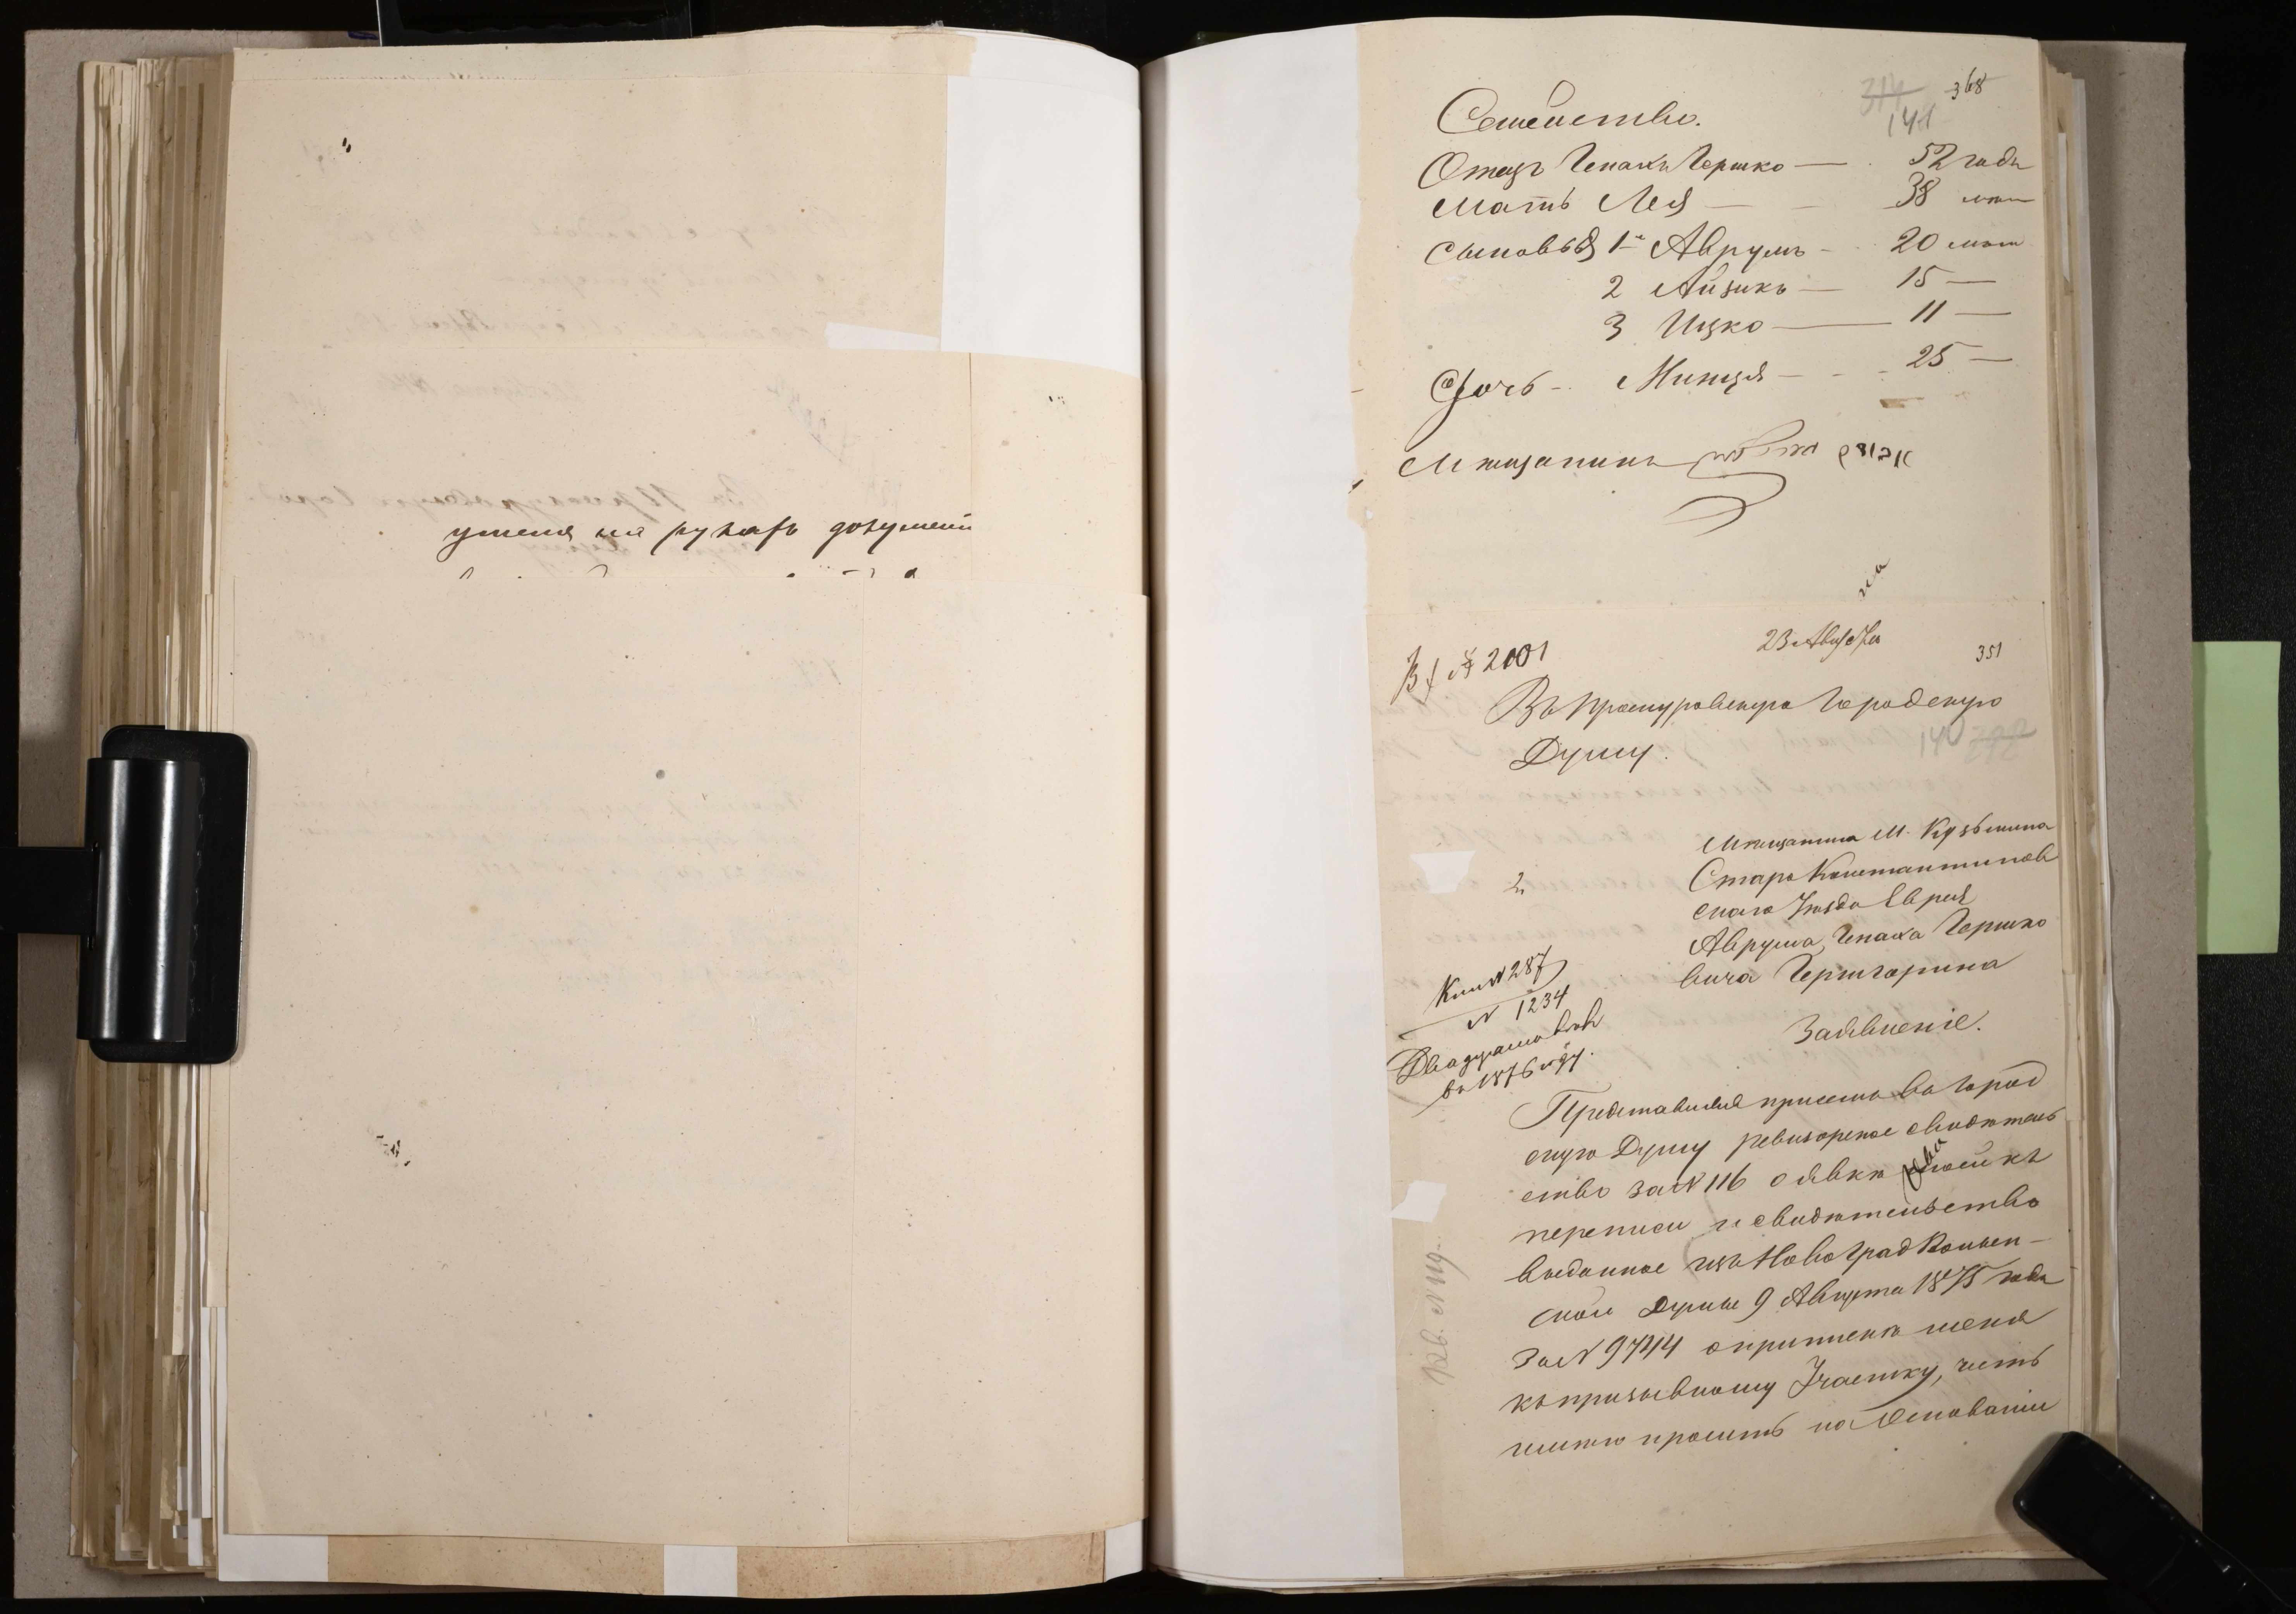 у меня на рукахъ документ
368
314
141
Семейство.
Отецъ Чепахъ Гершко — 52 года
Мать Лея — 38 лѣт
Сыновья 1й Аврумъ — 20 лѣт
2 Айзикъ — 15 —
3 Ицко — 11 —
Дочь — Минця — 25 —
Мѣщанинъ
23 Августа
351
Вх № 2001
Въ Проскуровскую Городскую
Думу.
140
2
Мѣщанина М. Кузьмина
Старо Константинов
скаго Уѣзда Еврея
Аврума Чепаха Гершко
вича
Кни № 287
№ 1234
въ 1876 году.
Заявленіе.
Представляя при семъ въ Город
скую Думу ревизорское свидѣтель
ство за № 116 о явкѣ моей къ
переписи и свидѣтельство
выданное изъ Новоградволын-
ской Думы 9 Августа 1875 года
за № 9744 о припискѣ меня
къ призывному Участку, честь
имѣю просить на Основаніи